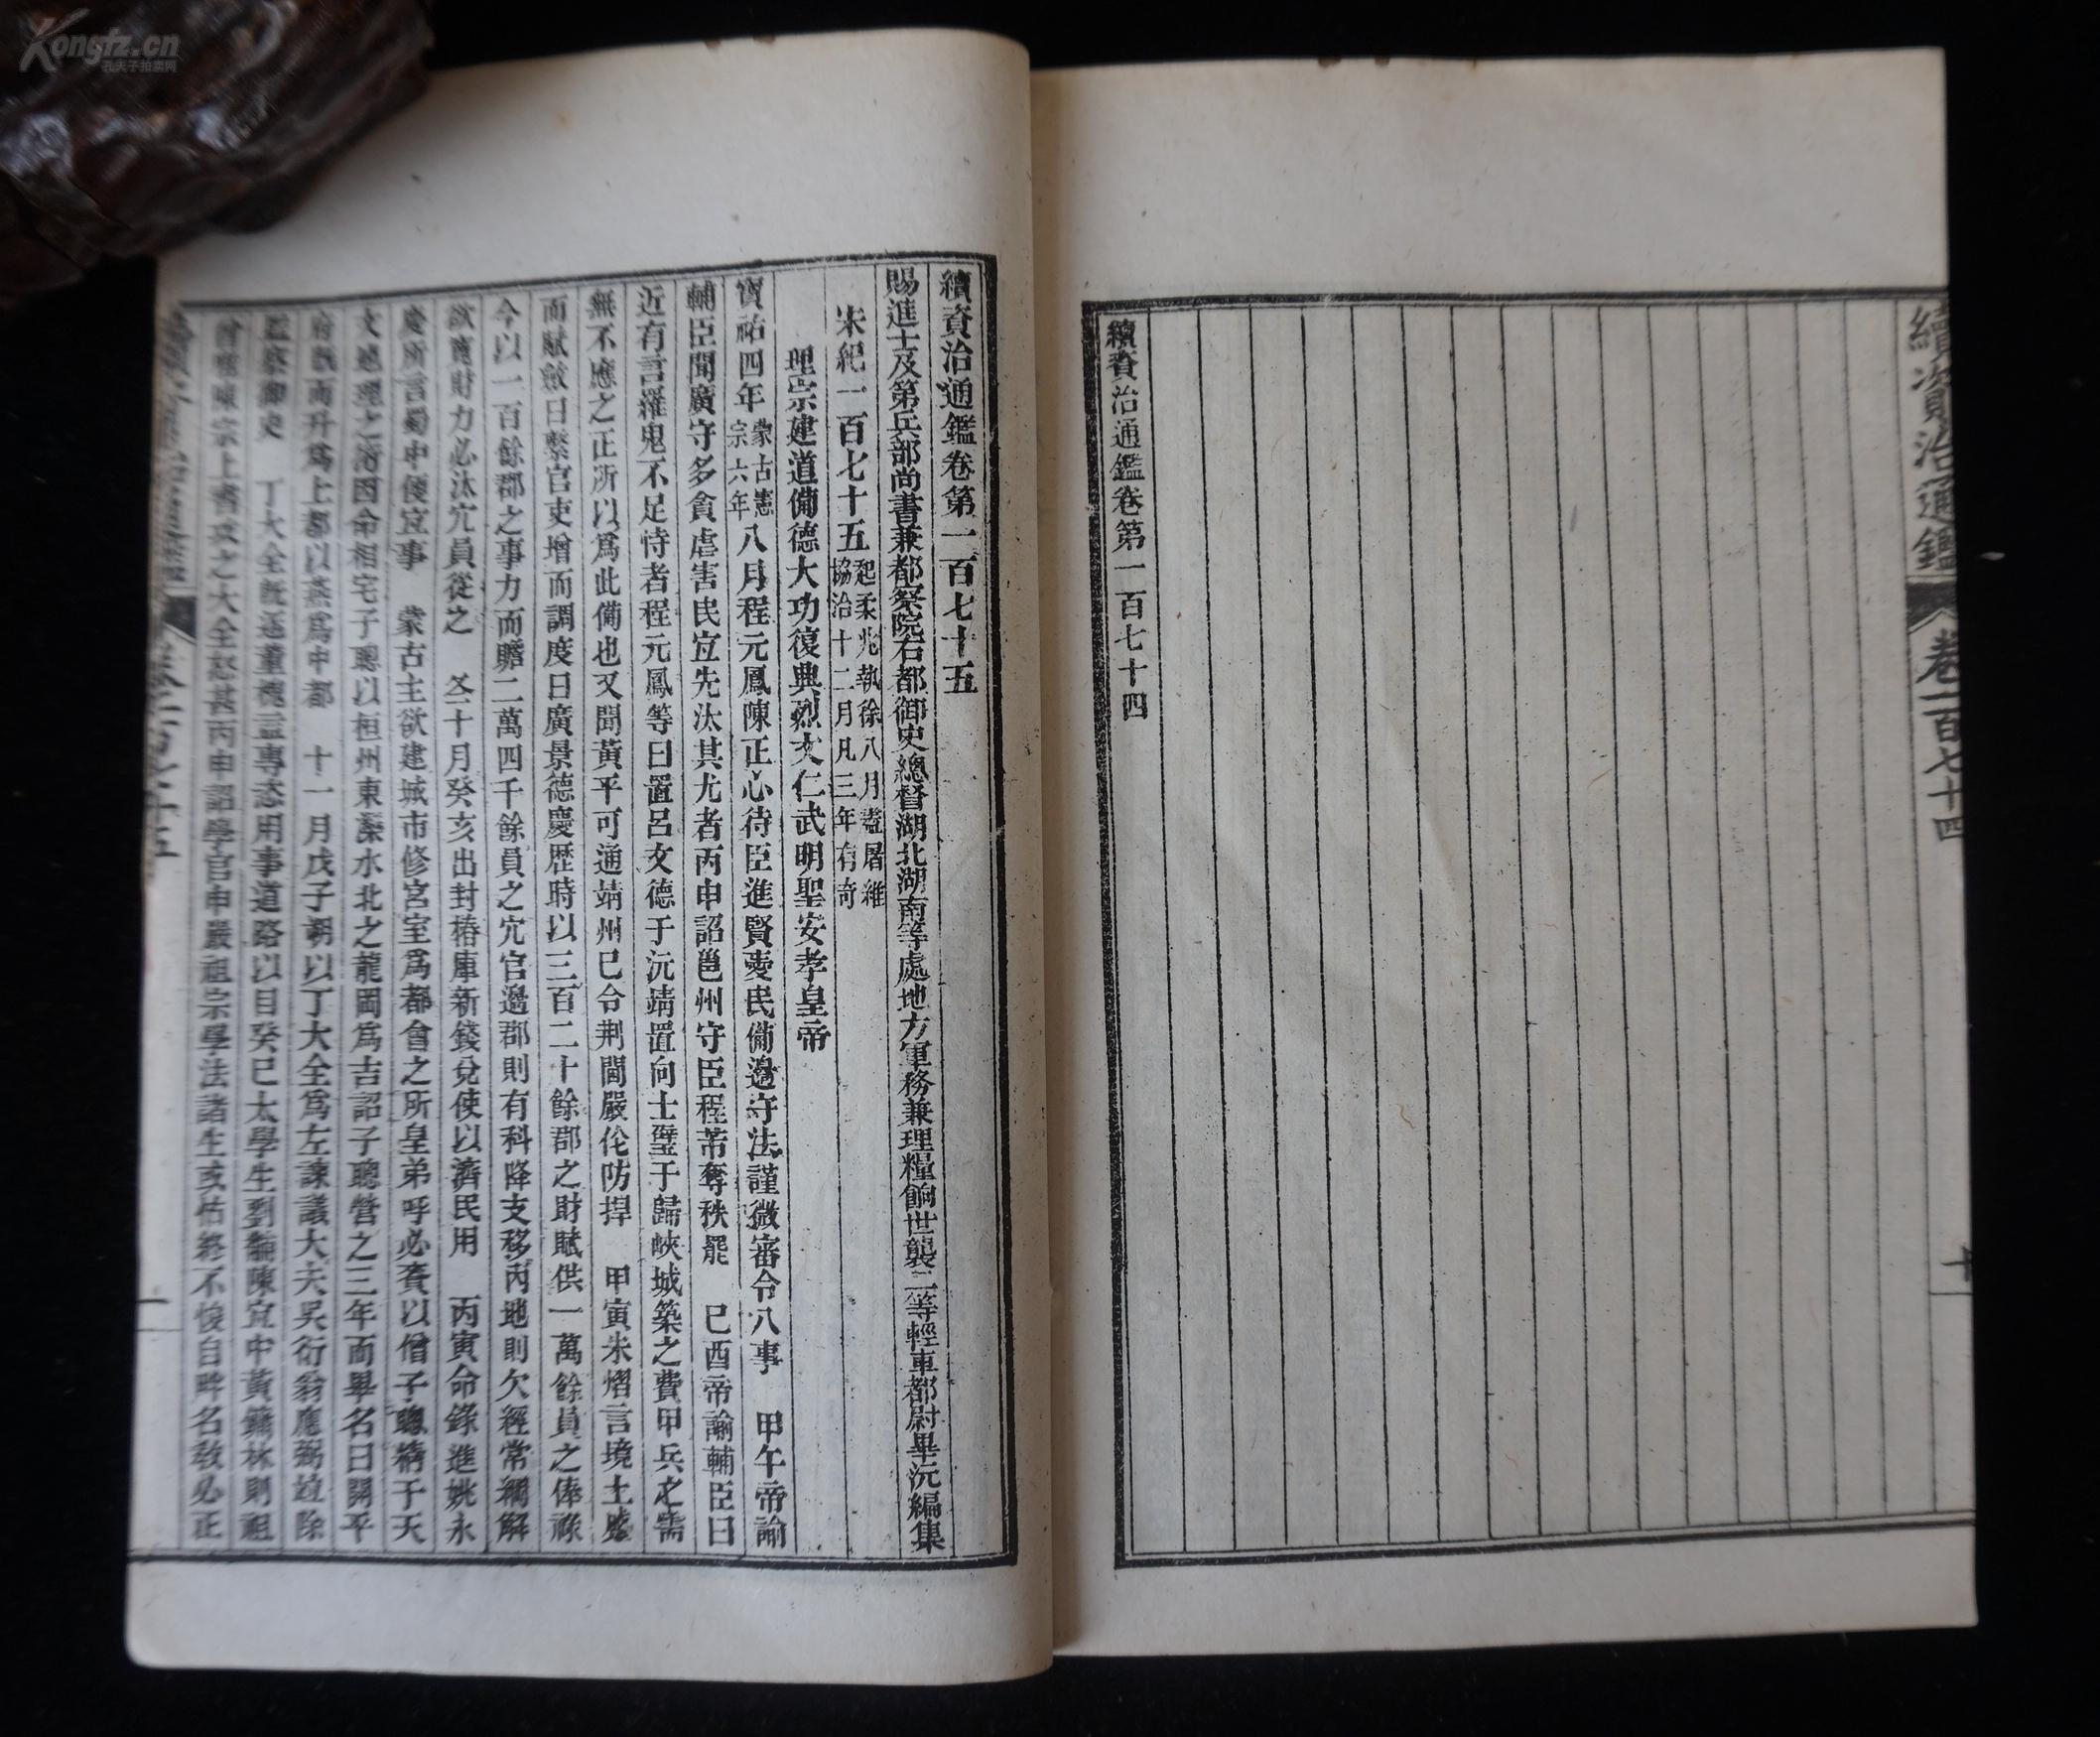 Kongfz.cn
孔夫子拍卖网
續資治通鑑
卷一百七十四
十
續資治通鑑卷第一百七十四
續資治通鑑卷第一百七十五
賜進士及第兵部尚書兼都察院右都御史總督湖北湖南等處地方軍務兼理糧餉世襲二等輕車都尉畢沅編集
宋紀一百七十五起柔兆執徐八月盡屠維協洽十二月凡三年有奇
理宗建道備德大功復興烈文仁武明聖安孝皇帝
寶祐四年蒙古憲宗六年八月程元鳳陳正心待臣進賢愛民備邊守法謹微審令八事　甲午帝諭
輔臣聞廣守多貪虐害民宜先汰其尤者丙申詔邕州守臣程芾奪秩罷　已酉帝諭輔臣曰
近有言羅鬼不足恃者程元鳳等曰置呂文德于沅靖置向士璧于歸峽城築之費甲兵之需
無不應之正所以爲此備也又聞黃平可通靖州已令荆閫嚴伦防捍　甲寅朱熠言境土蹙
而賦斂日繁官吏增而調度日廣景德慶歴時以三百二十餘郡之財賦供一萬餘員之俸祿
今以一百餘郡之事力而贍二萬四千餘員之宂官邊郡則有科降支移內地則欠經常綱解
欲寬財力必汰宂員從之　冬十月癸亥出封樁庫新錢兌使以濟民用　丙寅命錄進姚永
慶所言蜀中便宜事　蒙古主欲建城市修宮室爲都會之所皇弟呼必賚以僧子聰精于天
文地理之術因命相宅子聰以桓州東灤水北之龍岡爲吉詔子聰營之三年而畢名曰開平
府既而升爲上都以燕爲中都　十一月戊子朔以丁大全爲左諫議大夫吳衍翁應弼竝除
監察御史　丁大全既逐董槐益專恣用事道路以目癸巳太學生劉黻陳宜中黃鏞林則祖
曾唯陳宗上書攻之大全怒甚丙申詔學官申嚴祖宗學法諸生或怙終不悛自畔名教必正
卷一百七十五
一